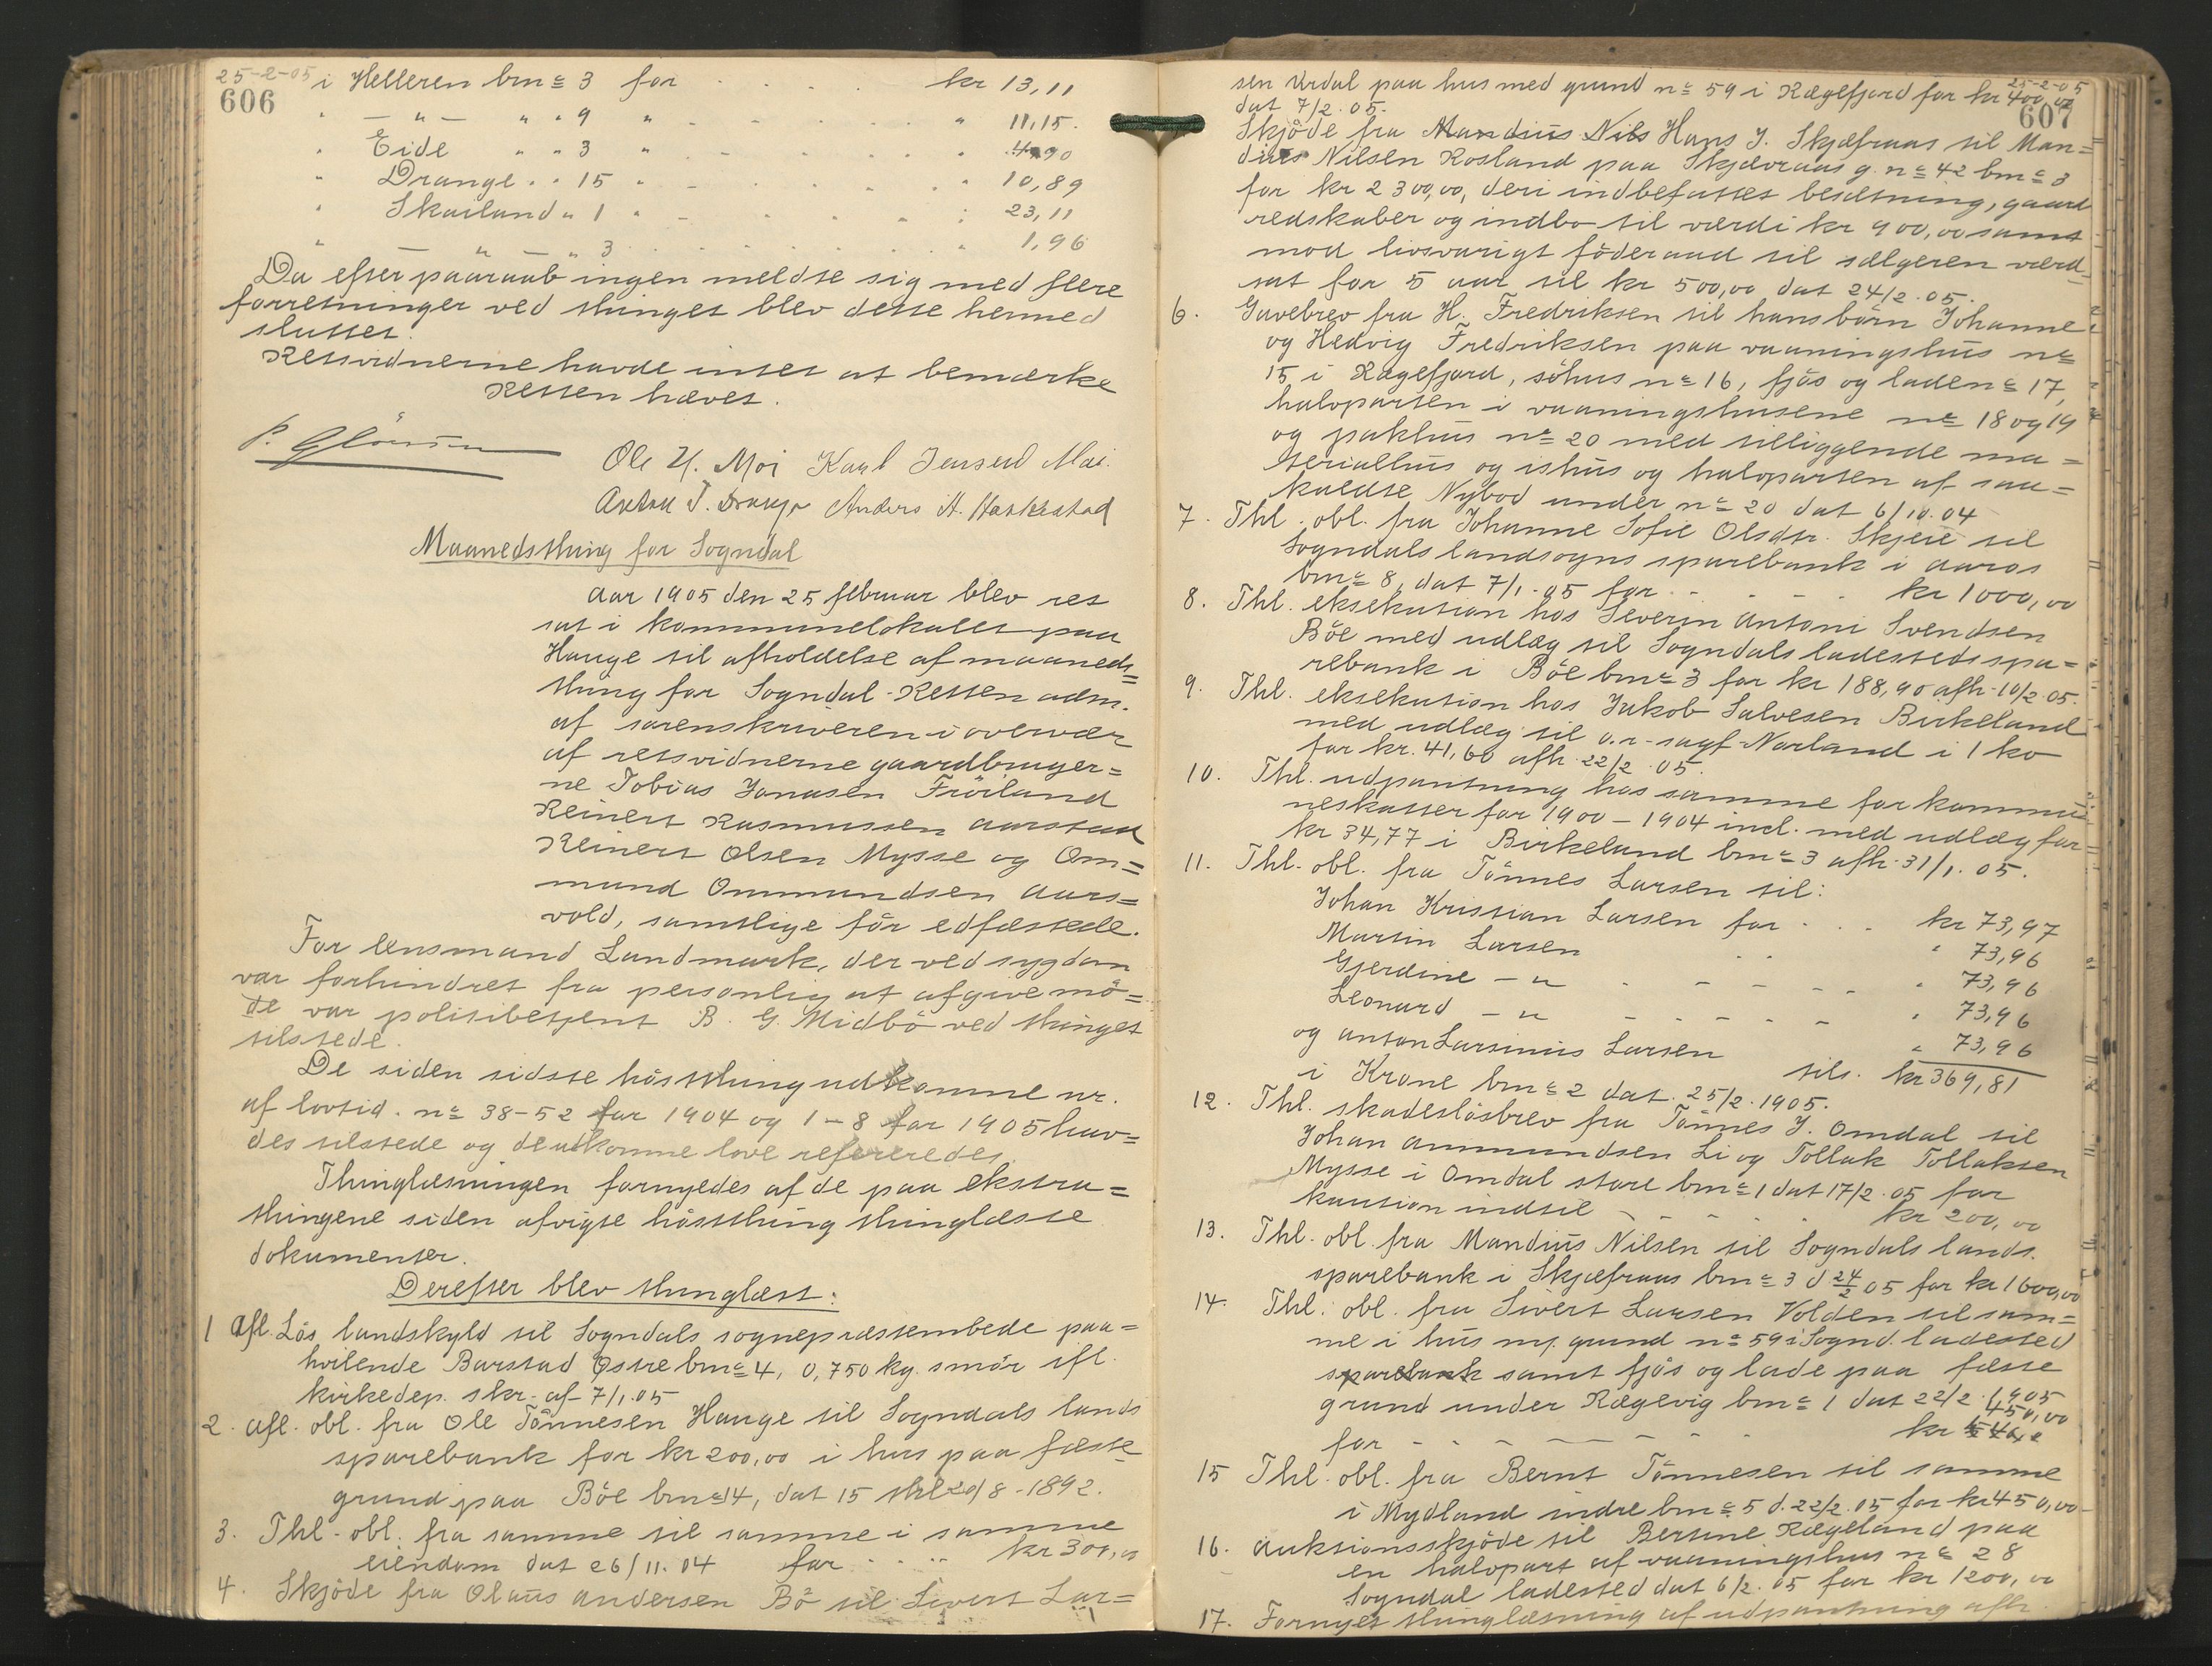 25-2-05 i Helleren bn<u>r</u> 3 for . . . kr 13,11
606
" — " — " " 9 " - - - - " 11,15.
" Eide " " 3 " - - - - " 4,90
" Drange . " 15 " - - - - " 10,89
" Skailand " 1 " - - - - " 23,11
" — " — " 3 . . . . . " 1,96
Da efter paaraab ingen meldte sig med flere
forretninger ved thinget blev dette hermed
sluttet.
Retsvidnerne havde intet at bemærke
Retten hævet.
Ole H. Moi Karl Jensen Moi.
Anton T. Drange Anders A. Haskestad
Maanedsthing for Sogndal
Aar 1905 den 25 februar blev ret
sat i kommunelokalet paa
Hauge til afholdelse af maaneds=
thing for Sogndal - Retten adm.
af sorenskriveren i overvær
af retsvidnerne gaardbruger=
ne Tobias Jonasen Fröiland
Reinert Rasmussen Aarstad
Reinert Olsen Mysse og Om=
mund Ommundsen Aars=
vold, samtlige för edfæstede.
For lensmand Landmark, der ved sygdom
var forhindret fra personlig at afgive mö=
de var politibetjent B. G. Midbö ved thinget
tilstede.
De siden sidste høstthing udkomne nr.
af lovtid. nr 38-52 for 1904 og 1-8 for 1905 hav=
des tilstede og de udkomne love refereredes.
Thinglæsningen fornyedes af de paa ekstra=
thingene siden afvigte höstthing thinglæste
dokumenter.
Derefter blev thinglæst:
1 Afl. Lös landskyld til Sogndals sogneprestembede paa=
hvilende Barstad Østre bnr 4, 0,750 kg. smör ifl.
kirkedep. skr. af 7/1.05
2. Afl. obl. fra Ole Tönnesen Hauge til Sogndals lands
sparebank for kr 200,00 i hus paa fæste
grund paa Böe bnr 14, dat 15 thl 20/8-1892.
3. Thl. obl. fra samme til samme i samme
eiendom dat 26/11.04 for . . . . kr 300,00
4. Skjöde fra Olaus Andersen Bö til Sivert Lar=
25-2-05
607
sen Urdal paa hus med grund nr 59 i Rægefjord for kr 400,00
dat 7/2.05.
Skjöde fra Mandius Nils Hans J. Skjefraas til Man=
dius Nilsen Rosland paa Skjævraas g. nr 42 bnr 3
for kr 2300,00, deri indbefattet besætning, gaard
redskaber og indbo til værdi kr 900,00 samt
mod livsvarigt föderaad til sælgeren værd=
sat for 5 aar til kr 500,00 dat 24/2.05.
6. Gavebrev fra H. Fredriksen til hans börn Johanne
og Hedvig Fredriksen paa vaaningshus nr
15 i Rægefjord, söhus nr 16, fjös og lade nr 17,
halvparten i vaaningshusene nr 18 og 19
og pakhus nr 20 med tilliggende ma=
terialhus og ishus og halvparten af saa=
kaldte Nybod under nr 20 dat 6/10.04
7. Thl. obl. fra Johanne Sofie Olsdtr. Skjeie til
Sogndals landsogns sparebank i Aaros
bnr 8, dat 7/1.05 for . . . . kr 1000,00
8. Thl. eksekution hos Severin Antoni Svendsen
Böe med udlæg til Sogndals ladesteds spa=
rebank i Böe bnr 3 for kr 188,90 afh. 10/2.05.
9. Thl. eksekution hos Jakob Salvesen Birkeland
med udlæg til o.r-sagf. Norland i 1 ko
for kr. 41,60 afh. 22/2.05.
10. Thl. udpantning hos samme for kommu=
neskatter for 1900-1904 incl. med udlæg for
kr 34,77 i Birkeland bnr 3 afh. 31/1.05.
11. Thl. obl. fra Tönnes Larsen til:
Johan Kristian Larsen for . . . kr 73,97
Martin Larsen . . " 73,96
Gjerdine — " - - - - " 73,96
Leonard — " - - - - " 73,96
og Anton Larsinius Larsen " 73,96
tils. kr 369,81
i Krone bnr 2 dat. 25/2.1905.
12. Thl. skadeslösbrev fra Tönnes J. Omdal til
Johan Ammundsen Li og Tollak Tollaksen
Mysse i Omdal store bnr 1 dat 17/2.05 for
kaution indtil - - - . kr 200,00
13. Thl. obl. fra Mandius Nilsen til Sogndals lands.
sparebank i Skjefraas bnr 3 d 24/2 05 for kr 1600,00
14. Thl. obl. fra Sivert Larsen Volden til sam=
me i hus m. grund nr 59 i Sognd. ladested
sparebank samt fjös og lade paa fæste
grund under Rægevig bnr 1 dat 22/2.1905
450,00
for - - - - - - - kr
15 Thl. obl. fra Bernt Tönnesen til samme
i Mydland indre bnr 5 d. 22/2.05 for kr 450,00
16. Auktionsskjöde til Bertine Rægeland paa
en halvpart af vaaningshus nr 28
Sogndal ladested dat 6/2.05 for kr 1200,00
17. Fornyet thinglæsning af udpantning afh.